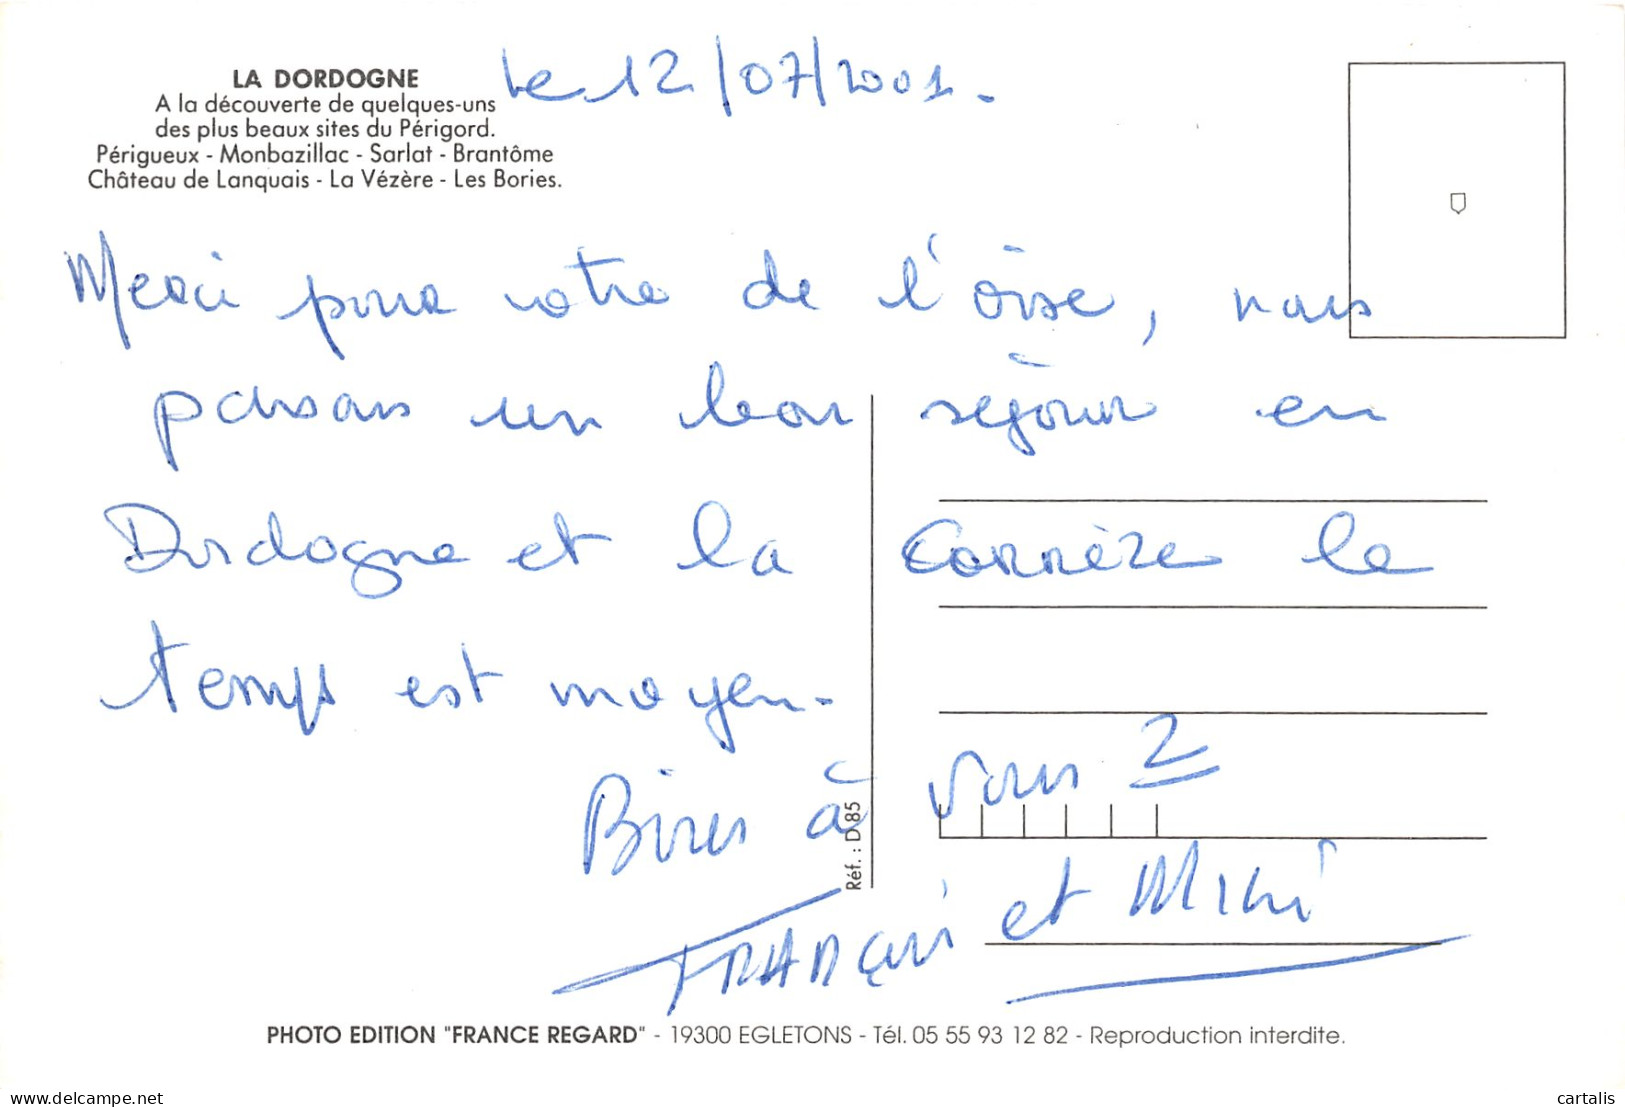 LA DORDOGNE
A la découverte de quelques-uns
des plus beaux sites du Périgord.
Périgueux - Monbazillac - Sarlat - Brantôme
Château de Lanquais - La Vézère - Les Bories.
Le 12/07/2001.
Merci pour votre de l'Oise, nous
passons un bon séjour en
Dordogne et la Corrèze le
temps est moyen.
Bises à vous 2
et
Réf. : D 85
PHOTO EDITION "FRANCE REGARD" - 19300 EGLETONS - Tél. 05 55 93 12 82 - Reproduction interdite.
delcampe.net
cartalis